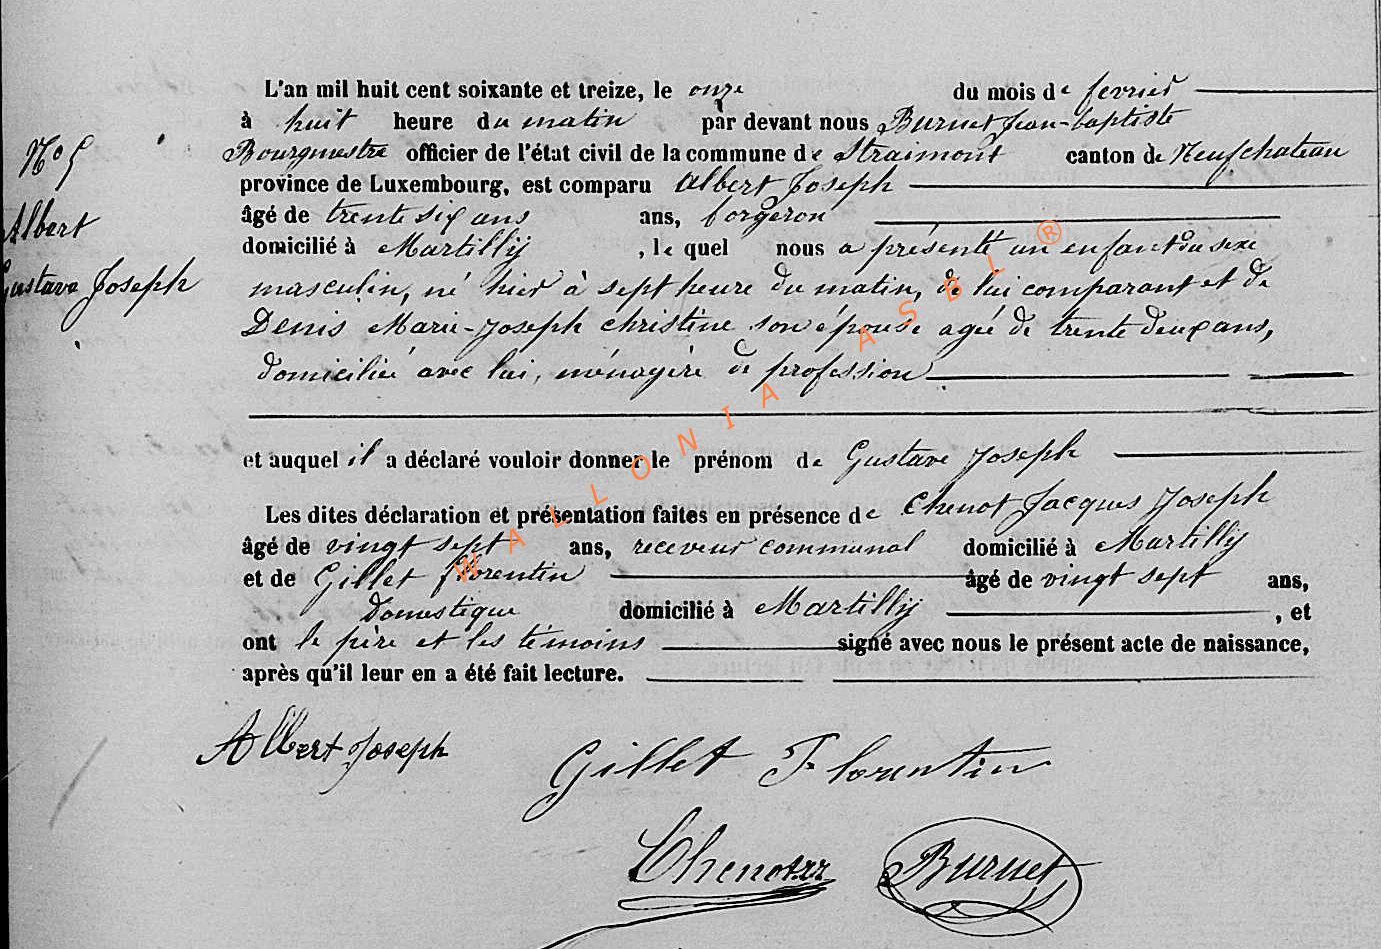 L'an mil huit cent soixante et treize, le onze du mois de fevrier
à huit heure du matin par devant nous Burnet Jean-baptiste
Bourgmestre officier de l'état civil de la commune de Straimont canton de Neufchateau
province de Luxembourg, est comparu Albert Joseph
âgé de trente six ans ans, forgeron
domicilié à Martilly, le quel nous a présenté un enfant du sexe
masculin, né hier à sept heure du matin, de lui comparant et de
Denis Marie-Joseph Christine son épouse agée de trente deux ans,
domiciliée avec lui, ménagère de profession
et auquel il a déclaré vouloir donner le prénom de Gustave Joseph
Les dites déclaration et présentation faites en présence de Chenot Jacques Joseph
âgé de vingt sept ans, receveur communal domicilié à Martilly
et de Gillet florentin âgé de vingt sept ans,
Domestique domicilié à Martilly, et
ont le père et les témoins signé avec nous le présent acte de naissance,
après qu'il leur en a été fait lecture.
No 5
Albert
Gustave Joseph
Albert Joseph
Gillet Florentin
Burnet
WALLONIA ASBL ®